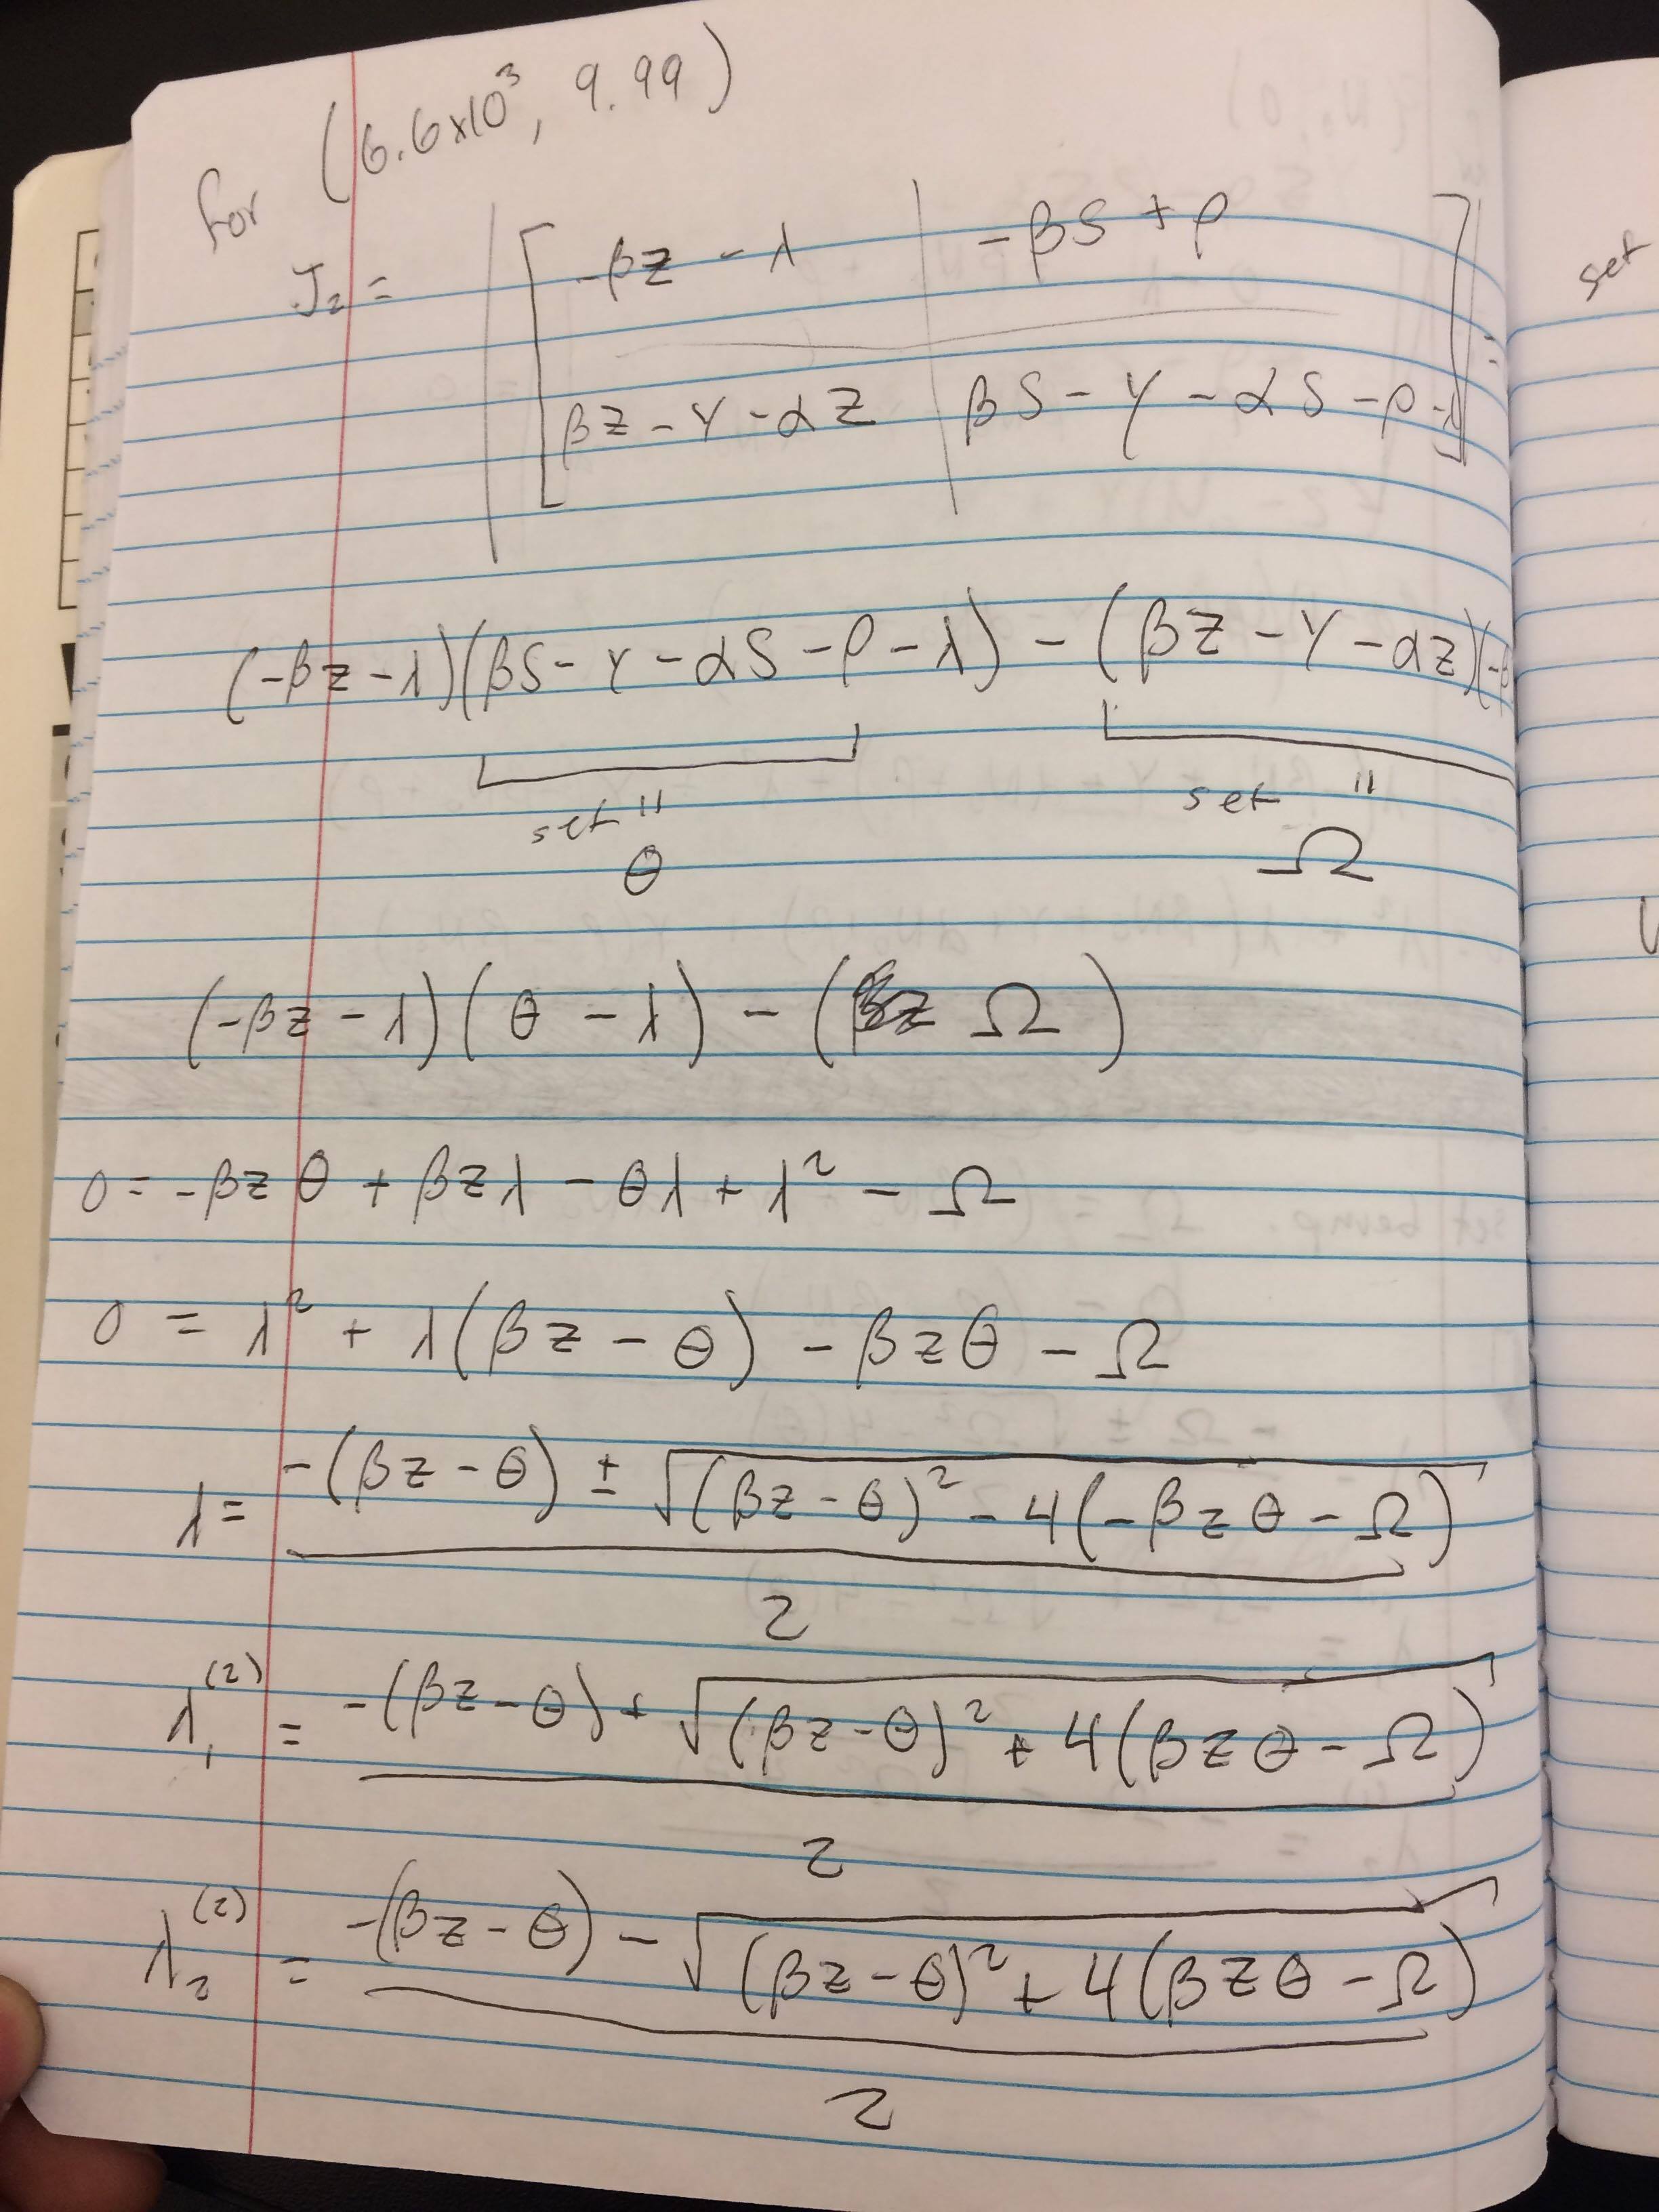 for (6.6x10³, 9.99)
J₂ = | [ -βz - λ | -βS + ρ
βz - γ - αz | βS - γ - αS - ρ - λ ] | =
(-βz - λ)(βS - γ - αS - ρ - λ) - (βz - γ - αz)(-β
set " θ
set " Ω
(-βz - λ)(θ - λ) - ( Ω )
0 = -βzθ + βzλ - θλ + λ² - Ω
0 = λ² + λ(βz - θ) - βzθ - Ω
λ = -(βz - θ) ± √(βz - θ)² - 4(-βzθ - Ω)
2
λ₁⁽²⁾ = -(βz - θ) + √(βz - θ)² + 4(βzθ - Ω)
2
λ₂⁽²⁾ = -(βz - θ) - √(βz - θ)² + 4(βzθ - Ω)
2
set